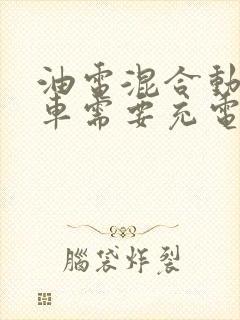 油電混合動
車需要充電
腦袋炸裂